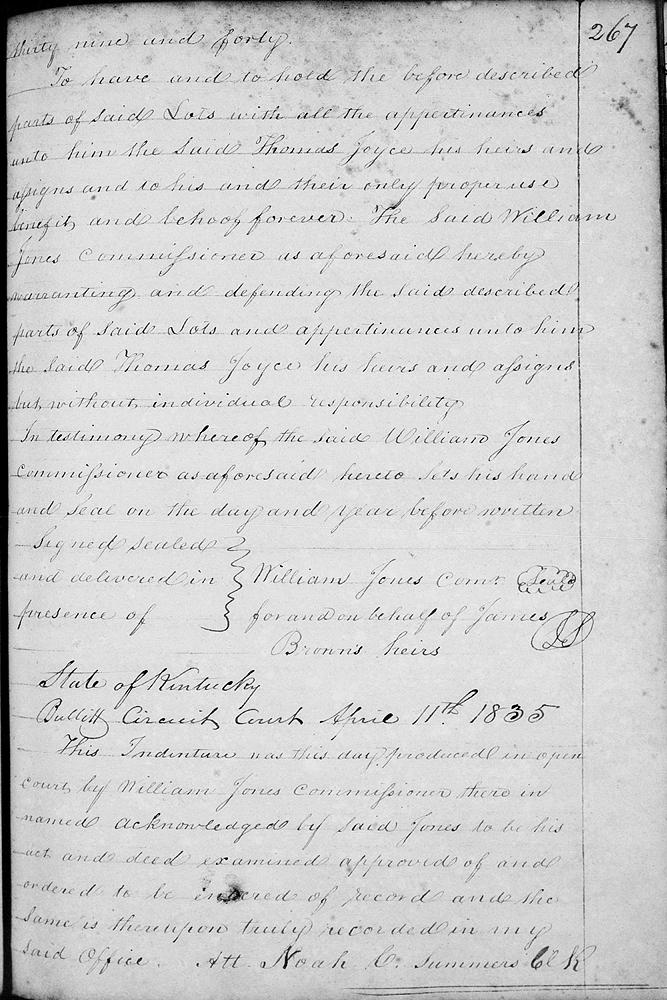 267
thirty nine and forty.
To have and to hold the before described
parts of said Lots with all the appertinances
unto him the said Thomas Joyce his heirs and
assigns and to his and their only proper use
benefit and behoof forever. The said William
Jones commissioner as aforesaid hereby
warranting and defending the said described
parts of said Lots and appertinances unto him
the said Thomas Joyce his heirs and assigns
but without individual responsibility
In testimony whereof the said William Jones
commissioner as aforesaid hereto sets his hand
and seal on the day and year before written
Signed sealed
and delivered in William Jones Comr Seal
presence of for and on behalf of James
Brown's heirs
State of Kentucky
Bullitt Circuit Court April 11th 1835
This Indenture was this day produced in open
court by William Jones commissioner there in
named acknowledged by said Jones to be his
act and deed examined approved of and
ordered to be entered of record and the
same is thereupon truly recorded in my
said office. Att. Noah C. Summers Clk